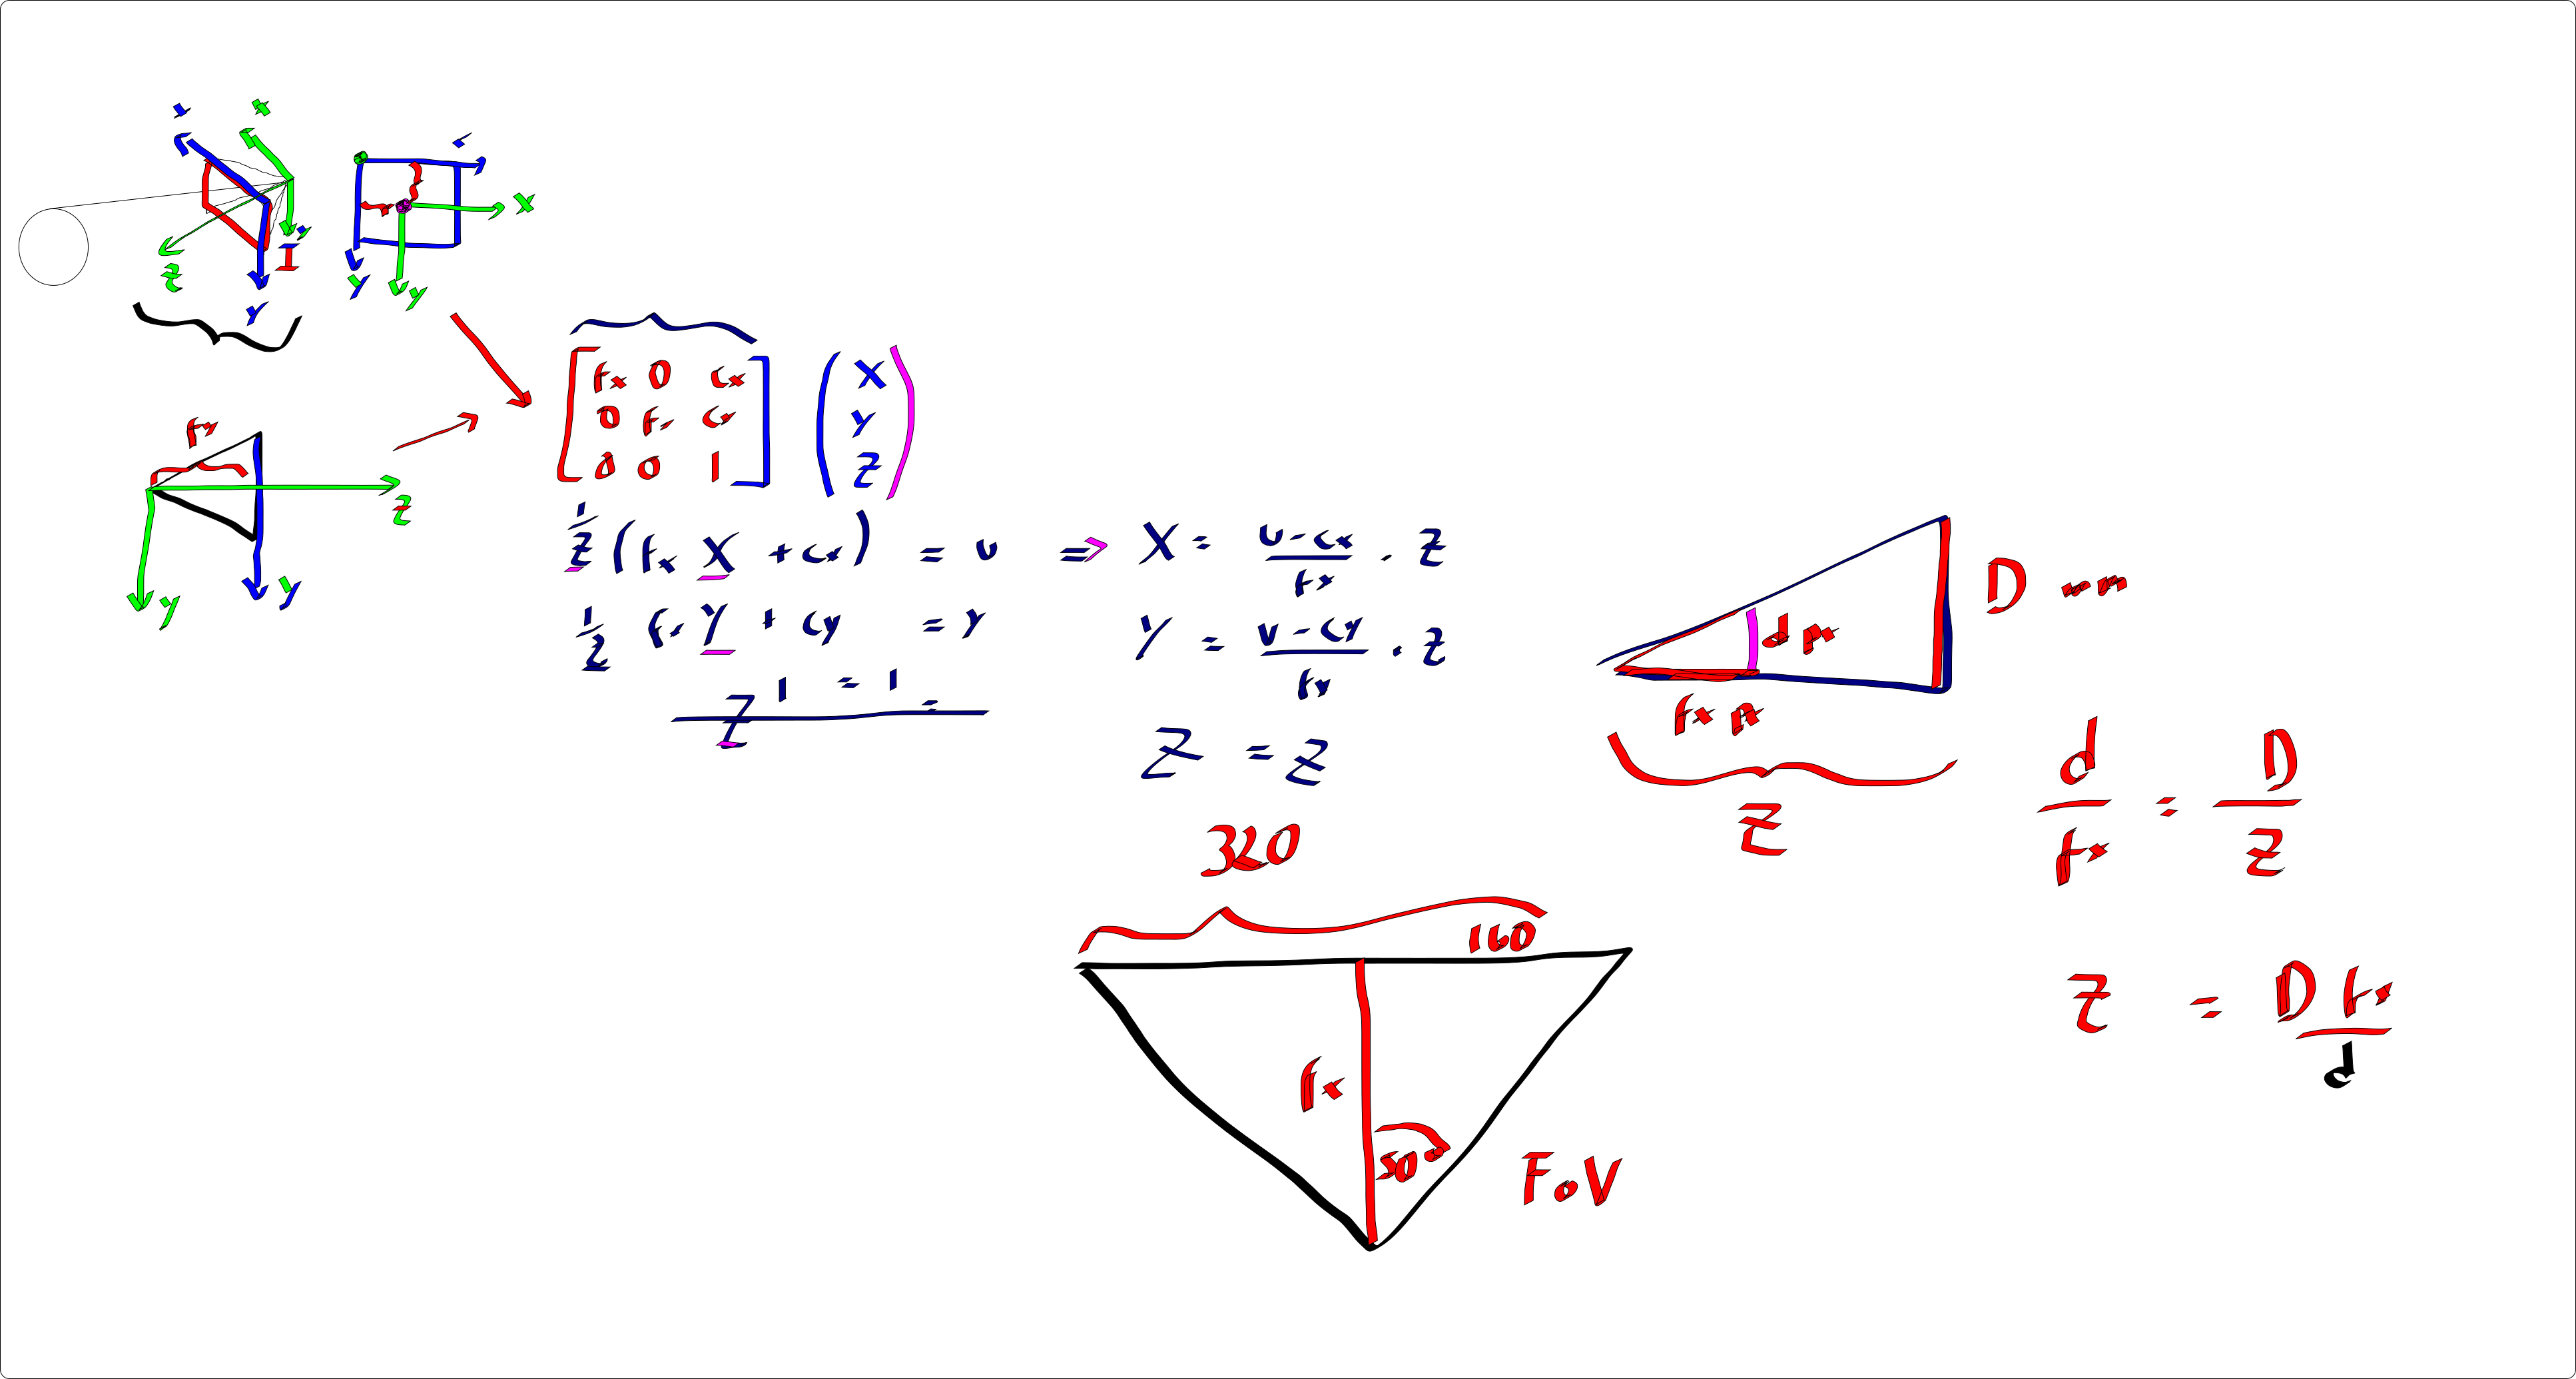 x x
x
z I y
y y y
fx 0 cx X
0 fy cy Y
0 0 1 Z
fy
z
y y
1/z (fx X + cx) = u => X = u-cx/fx . z
1/z fy Y + cy = v Y = v-cy/fy . z
Z 1 = 1 =
Z = z
D mm
d px
fx px
z
d/fx = D/z
z = D fx/d
320
160
fx
50°
FoV